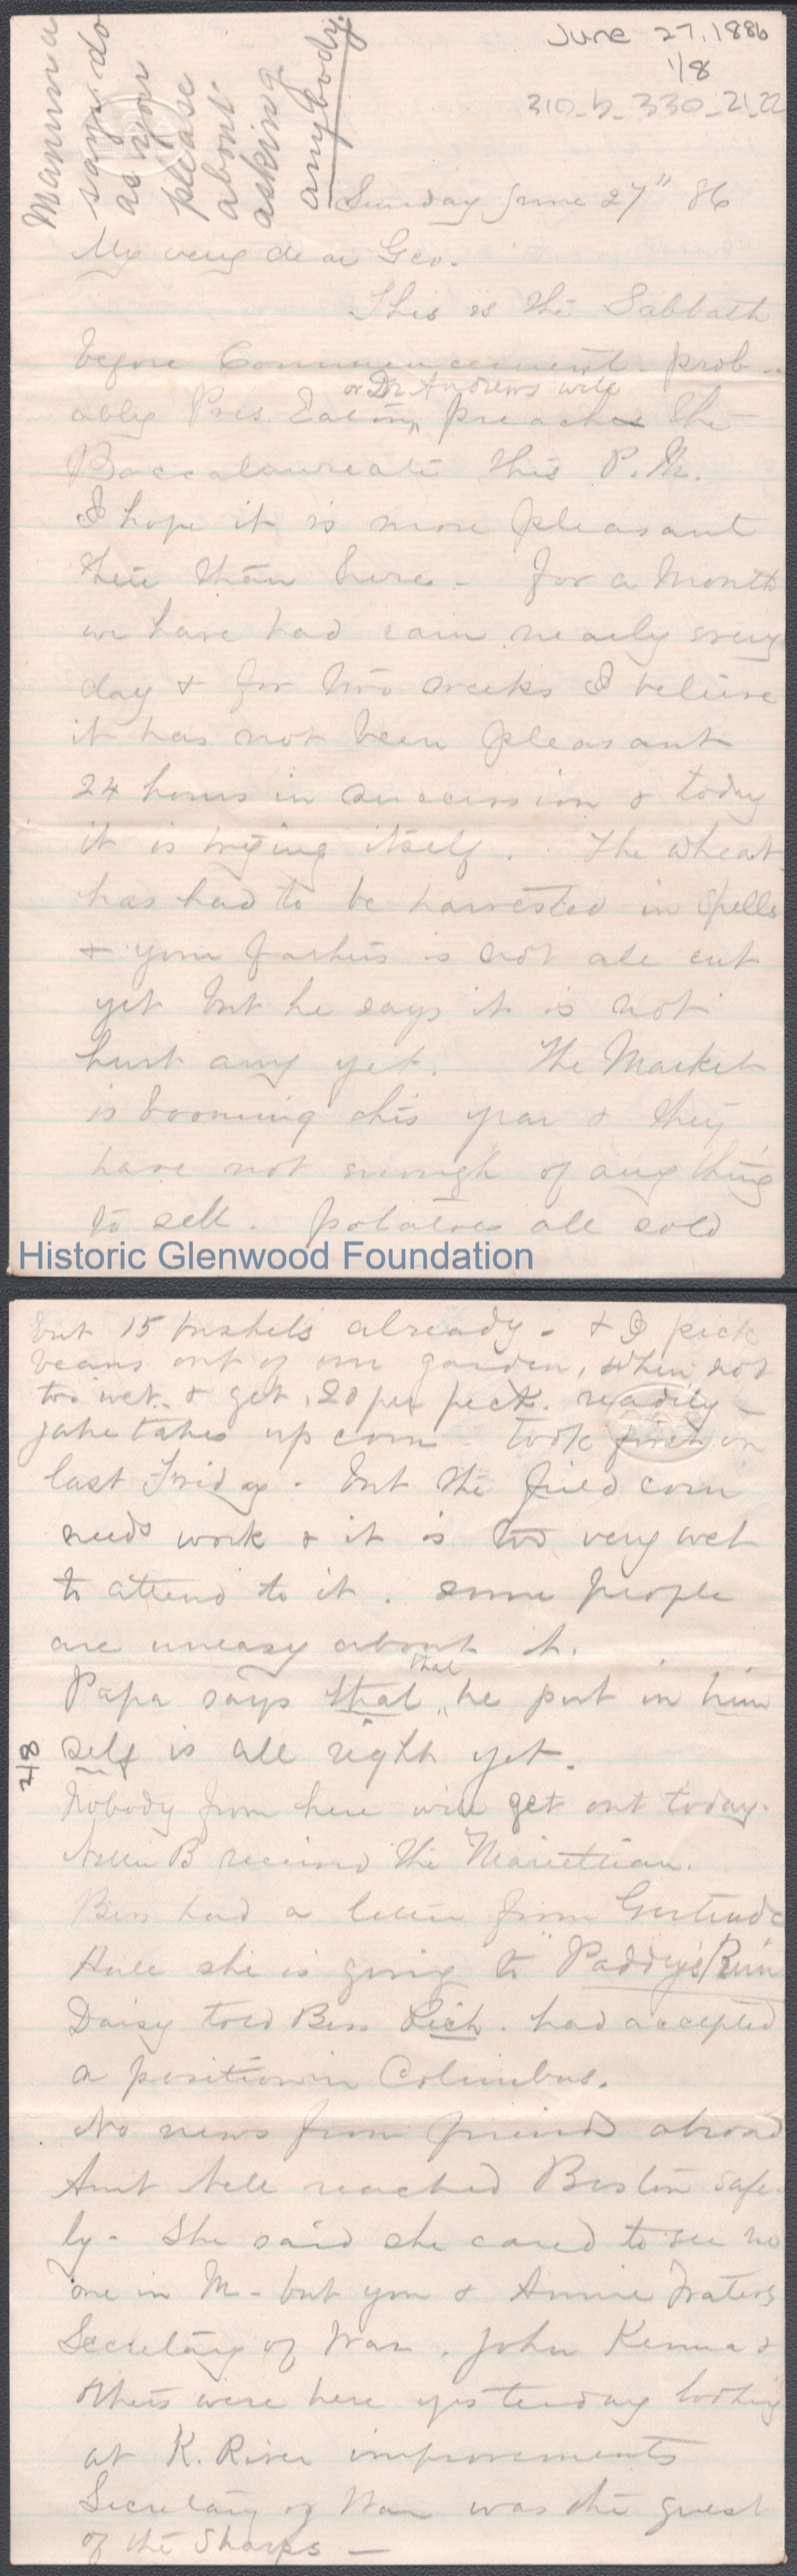 June 27, 1886
1/8
310_b_330_21_22
Mamma
says do
as you
please
about
asking
anybody.
Sunday June 27" 86
My very dear Geo.
This is the Sabbath
before Commencement - prob-
or Dr Andrews will
ably Pres. Eaton, preaches the
Baccalaureate this P.M.
I hope it is more pleasant
there than here - for a month
we have had rain nearly every
day & for two weeks I believe
it has not been pleasant
24 hours in succession & today
it is trying itself. The wheat
has had to be harvested in spells
& your father's is not all cut
yet but he says it is not
hurt any yet. The Market
is booming this year & they
have not enough of any thing
to sell. potatoes all sold
Historic Glenwood Foundation
but 15 bushels already - & I pick
beans out of our garden, when not
too wet - & get .20 per peck. readily -
Jake takes up corn - took first on
last Friday. but the field corn
needs work & it is too very wet
to attend to it. some people
are uneasy about it.
that
Papa says that he put in him
self is all right yet.
2/8
Nobody from here will get out today.
Nellie B received the Mariettian.
Bess had a letter from Gertrude
she is going to "Paddy's Run
Daisy told Bess Lich. had accepted
a position in Columbus.
No news from friends abroad
Aunt Nell reached Boston safe-
ly - She said she cared to see no
one in M - but you & Annie Waters
Secretary of War, John Kenna &
others were here yesterday looking
at K. River improvements
Secretary of War was the guest
of the Sharps -